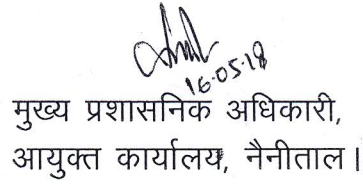 16-05-18
मुख्य प्रशासनिक अधिकारी,
आयुक्त कार्यालय, नैनीताल।